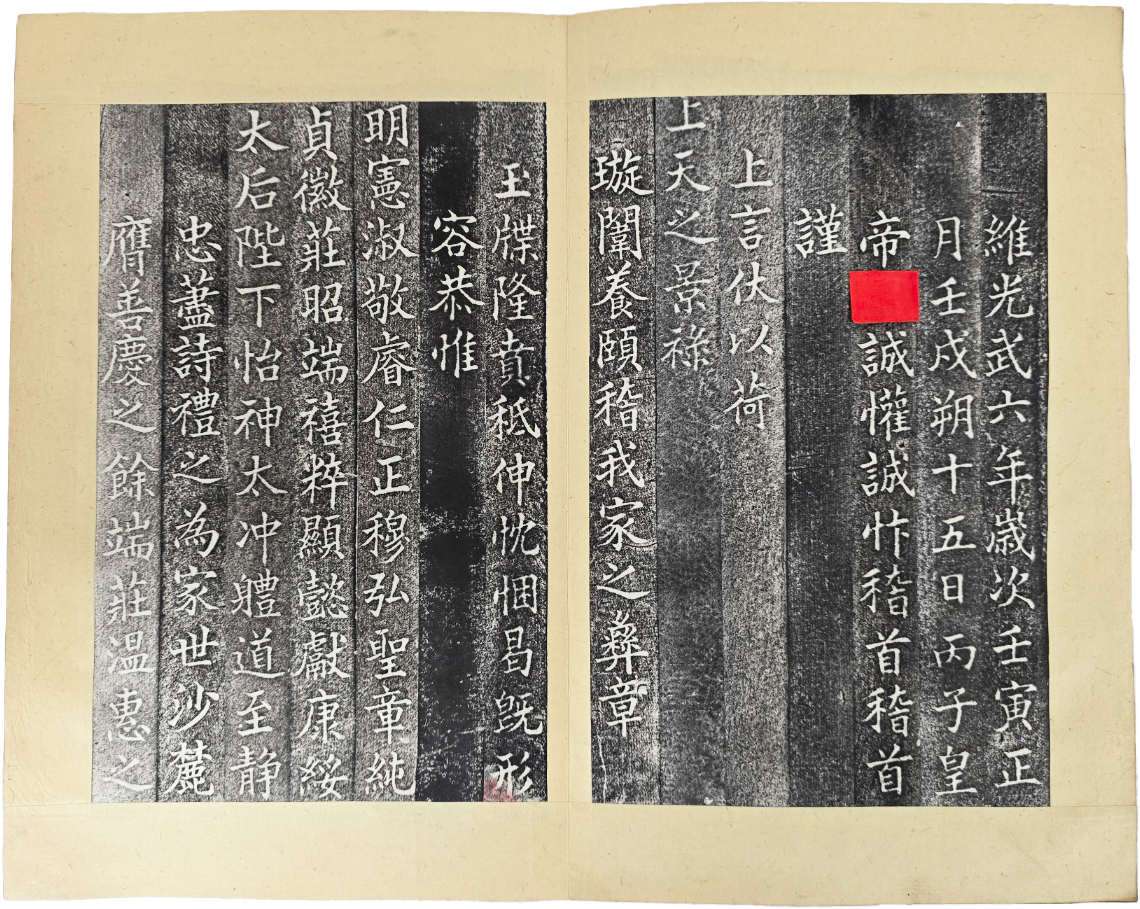 維光武六年歲次壬寅正
月壬戌朔十五日丙子皇
帝 誠懽誠忭稽首稽首
謹
上言伏以荷
上天之景祿
璇闈養頤稽我家之彝章
玉牒隆賁祗伸忱悃曷旣形
容恭惟
明憲淑敬睿仁正穆弘聖章純
貞徽莊昭端禧粹顯懿獻康綏
太后陛下怡神太冲軆道至静
忠藎詩禮之為家世沙麓
膺善慶之餘端莊温惠之